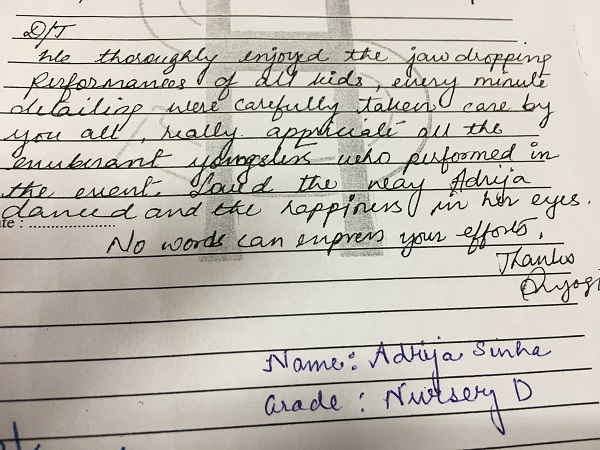 D/T
We thoroughly enjoyd the jaw dropping
performances of all kids, every minute
detailing were carefully taken care by
you all, really appriciate all the
exuberant youngsters who performed in
the event. Loved the way Adrija
danced and the happiness in her eyes.
ate : ....................
No words can express your efforts.
Thanks
Name: Adrija Sinha
Grade : Nursery D